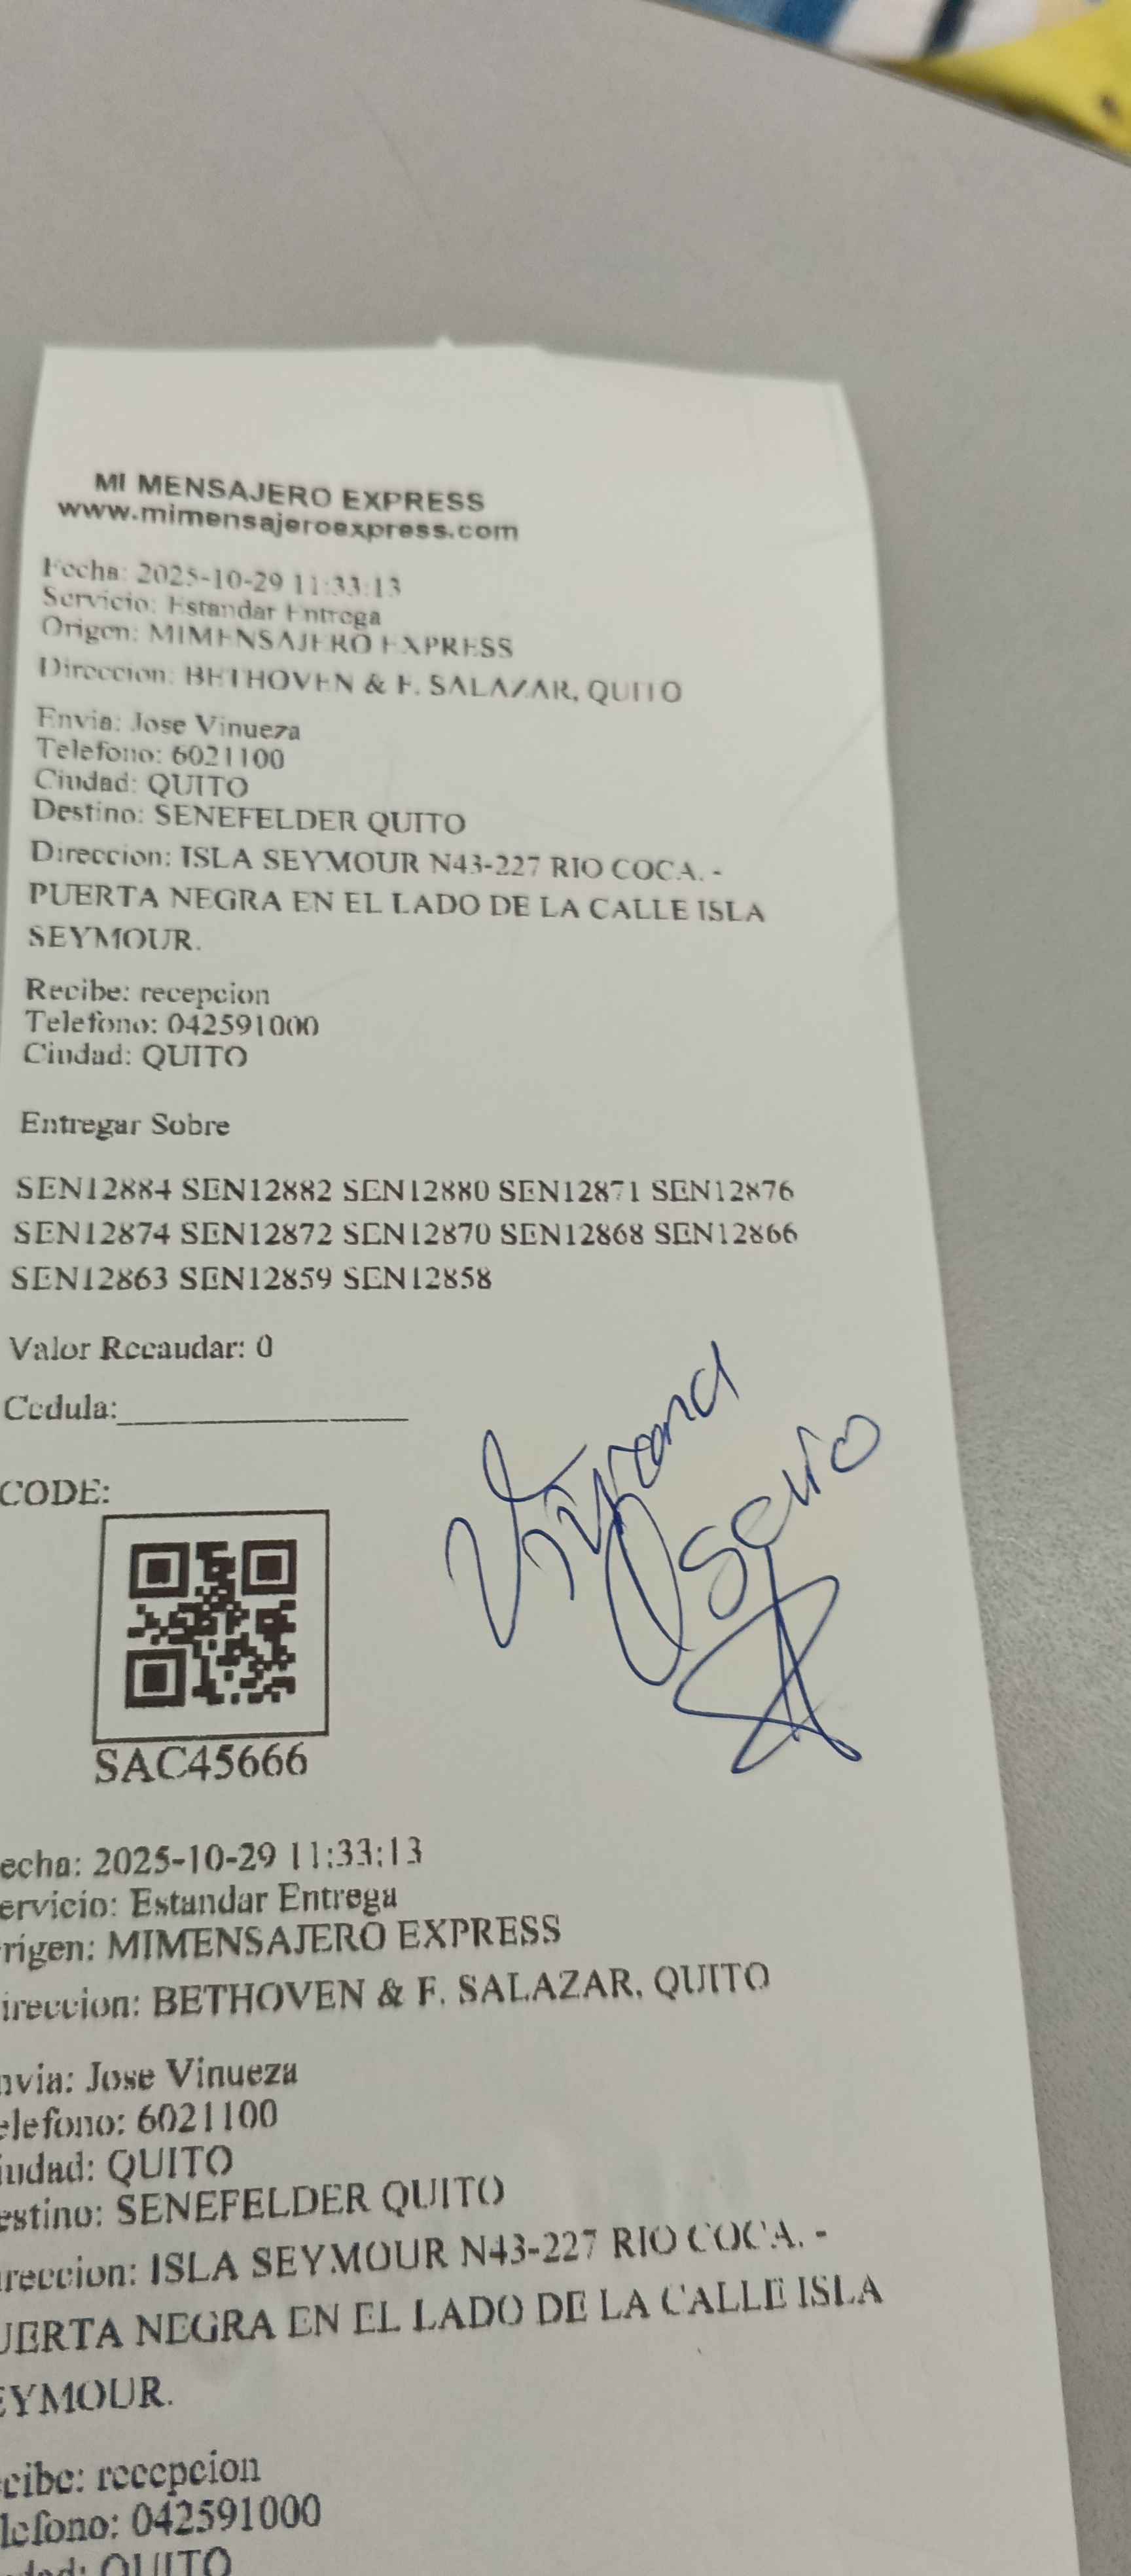 MI MENSAJERO EXPRESS
www.mimensajeroexpress.com
Fecha: 2025-10-29 11:33:13
Servicio: Estandar Entrega
Origen: MIMENSAJERO EXPRESS
Direccion: BETHOVEN & F. SALAZAR, QUITO
Envia: Jose Vinueza
Telefono: 6021100
Ciudad: QUITO
Destino: SENEFELDER QUITO
Direccion: ISLA SEYMOUR N43-227 RIO COCA. -
PUERTA NEGRA EN EL LADO DE LA CALLE ISLA
SEYMOUR.
Recibe: recepcion
Telefono: 042591000
Ciudad: QUITO
Entregar Sobre
SEN12884 SEN12882 SEN12880 SEN12871 SEN12876
SEN12874 SEN12872 SEN12870 SEN12868 SEN12866
SEN12863 SEN12859 SEN12858
Valor Recaudar: 0
Cedula:
CODE:
SAC45666
echa: 2025-10-29 11:33:13
ervicio: Estandar Entrega
rigen: MIMENSAJERO EXPRESS
ireccion: BETHOVEN & F. SALAZAR, QUITO
nvia: Jose Vinueza
elefono: 6021100
iudad: QUITO
estino: SENEFELDER QUITO
reccion: ISLA SEYMOUR N43-227 RIO COCA. -
UERTA NEGRA EN EL LADO DE LA CALLE ISLA
EYMOUR.
cibe: recepcion
lefono: 042591000
dad: QUITO